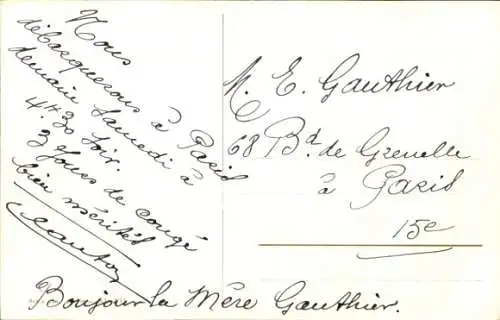 Nous
débarquerons à Paris
demain Samedi à
4h 30 soir.
3 Jours de congé
bien mérités
M. E. Gauthier
68 Bd. de Grenelle
à Paris
15e
Bonjour la Mère Gauthier.